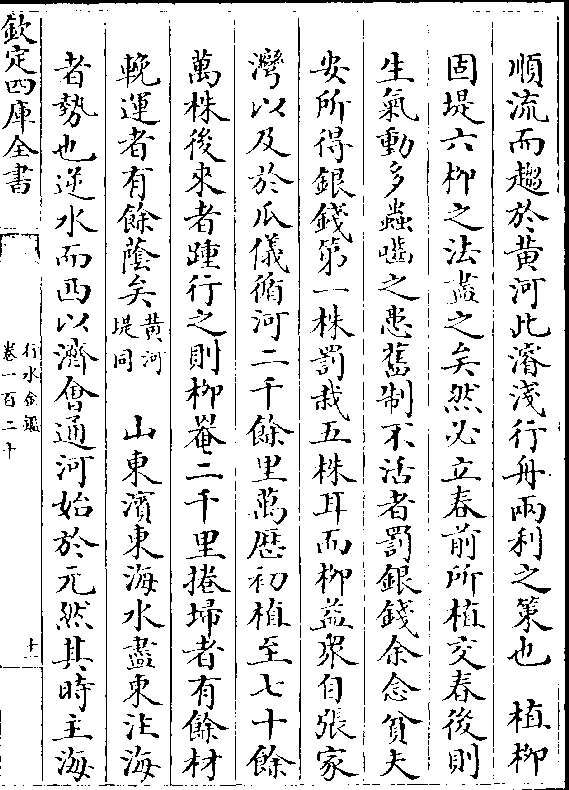 順流而趨於黄河此濬淺行舟兩利之策也　植柳
固堤六柳之法盡之矣然必立春前所植交春後則
生氣動多蟲囓之患舊制不活者罰銀錢余念貧夫
安所得銀錢第一株罰栽五株耳而柳益衆自張家
灣以及於瓜儀循河二千餘里萬厯初植至七十餘
萬株後來者踵行之則柳巷二千里捲埽者有餘材
輓運者有餘蔭矣黄河堤同　山東濱東海水盡東注海
者勢也逆水而西以濟會通河始於元然其時主海
欽定四庫全書
行水金鑑
卷一百二十
十一